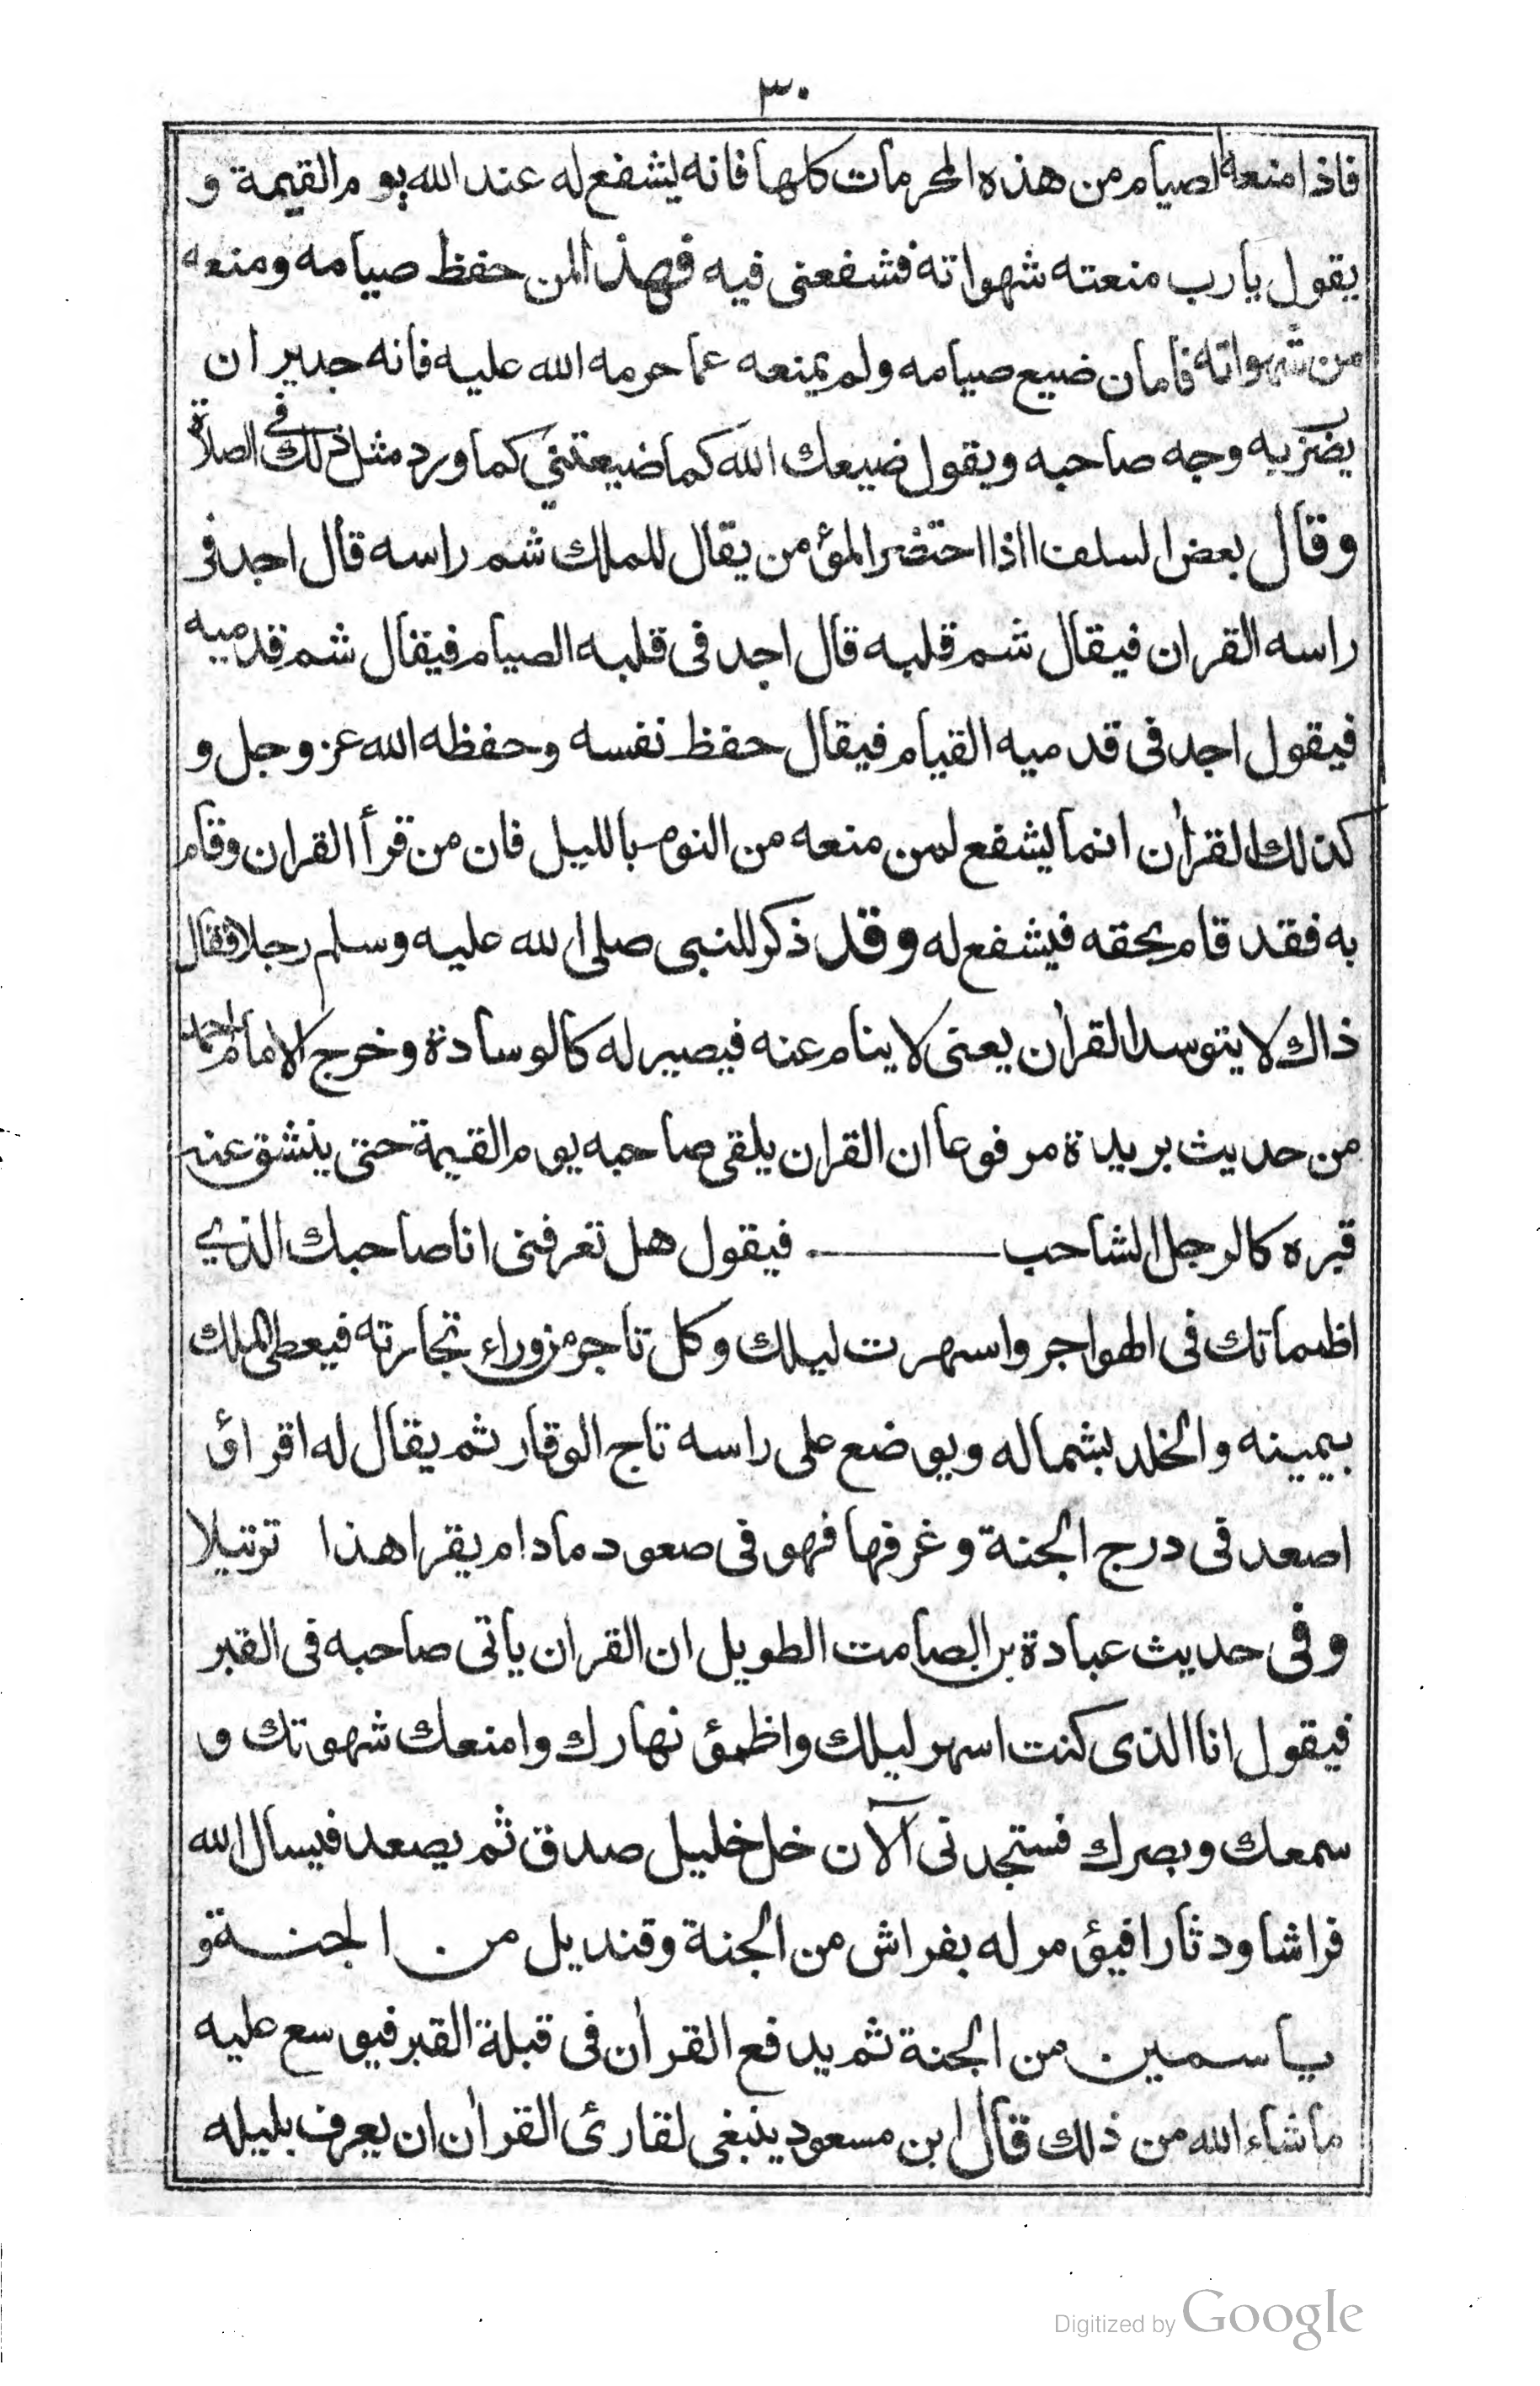 ٣٠
فاذا منعه الصيام من هذه المحرمات كلها فانه ليشفع له عند الله يوم القيمة و
يقول يارب منعته شهواته فشفعنى فيه فهذا لمن حفظ صيامه ومنعه
من شهواته فامان ضيع صيامه ولم يمنعه عما حرمه الله عليه فانه جدير ان
يضرب به وجه صاحبه ويقول ضيعك الله كما ضيعتني كما ورد مثل ذلك فى الصلاة
وقال بعض السلف اذا احتضر المؤمن يقال للملك شم راسه قال اجد فى
راسه القران فيقال شم قلبه قال اجد فى قلبه الصيام فيقال شم قدميه
فيقول اجد فى قدميه القيام فيقال حفظ نفسه وحفظه الله عز وجل و
كذلك القرأن انما يشفع لمن منعه من النوم بالليل فان من قرأ القران وقام
به فقد قام بحقه فيشفع له وقد ذكر للنبى صلى الله عليه وسلم رجلا فقال
ذاك لا يتوسد القرأن يعنى لا ينام عنه فيصير له كالوسادة وخرج الامام احمد
من حديث بريدة مرفوعا ان القران يلقى صاحبه يوم القيمة حتى ينشق عنه
قبره كالرجل الشاحب فيقول هل تعرفنى انا صاحبك الذي
اظماتك فى الهواجر واسهرت ليلك وكل تاجر من وراء تجارته فيعطى الملك
بيمينه والخلد بشماله ويوضع على راسه تاج الوقار ثم يقال له اقراؤ
اصعد فى درج الجنة وغرفها فهو فى صعود مادام يقرا هذا ترتيلا
وفى حديث عبادة بن الصامت الطويل ان القران ياتى صاحبه فى القبر
فيقول انا الذى كنت اسهر ليلك واظمئ نهارك وامنعك شهوتك و
سمعك وبصرك فستجدنى الآن خل خليل صدق ثم يصعد فيسال الله
فراشا ودثارا فيؤمر له بفراش من الجنة وقنديل من الجنة و
ياسمين من الجنة ثم يدفع القرأن فى قبلة القبر فيوسع عليه
ماشاء الله من ذلك قال ابن مسعود ينبغى لقارئ القرأن ان يعرف بليله
Digitized by Google